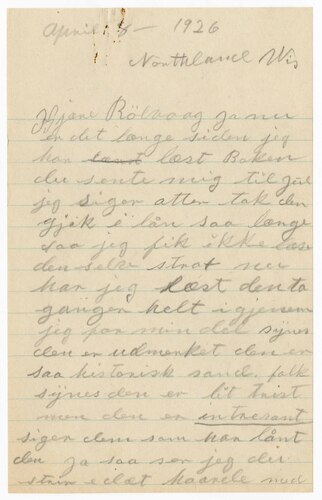 April 8 - 1926
Northland Wis
Hjære Rölvaag Ja nu
er det længe siden jeg
har læst Boken
du sente mig til Jul
jeg siger atter tak den
gjik i lån saa længe
saa jeg fik ikke læse
den selv strat nu
har jeg læst den to
ganger helt igjenem
jeg for min del synes
den er udmerket den er
saa historisk sand. folk
synes den er lit trist
men den er intresant
siger dem som har lånt
den Ja saa ser jeg du
i det haarde med